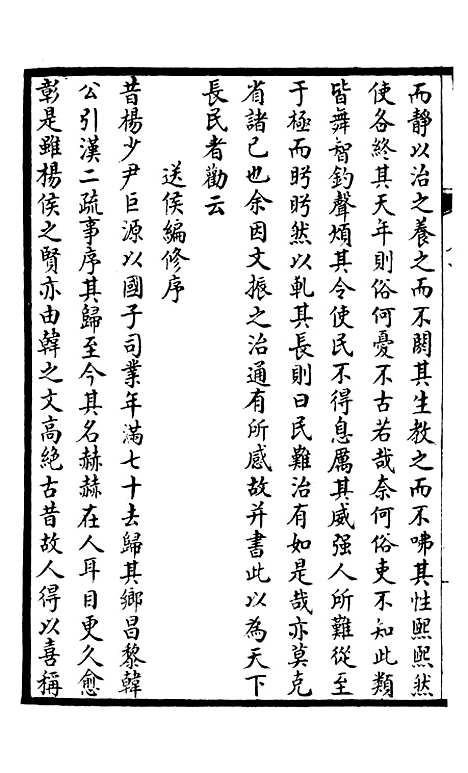 而靜以治之養之而不閼其生教之而不咈其性熙熙然
使各終其天年則俗何憂不古若哉奈何俗吏不知此類
皆舞智釣聲煩其令使民不得息厲其威强人所難從至
于極而盻盻然以軋其長則曰民難治有如是哉亦莫克
省諸已也余因文振之治通有所感故并書此以為天下
長民者勸云
送侯編修序
昔楊少尹巨源以國子司業年滿七十去歸其鄉昌黎韓
公引漢二疏事序其歸至今其名赫赫在人耳目更久愈
彰是雖楊侯之賢亦由韓之文高絶古昔故人得以喜稱